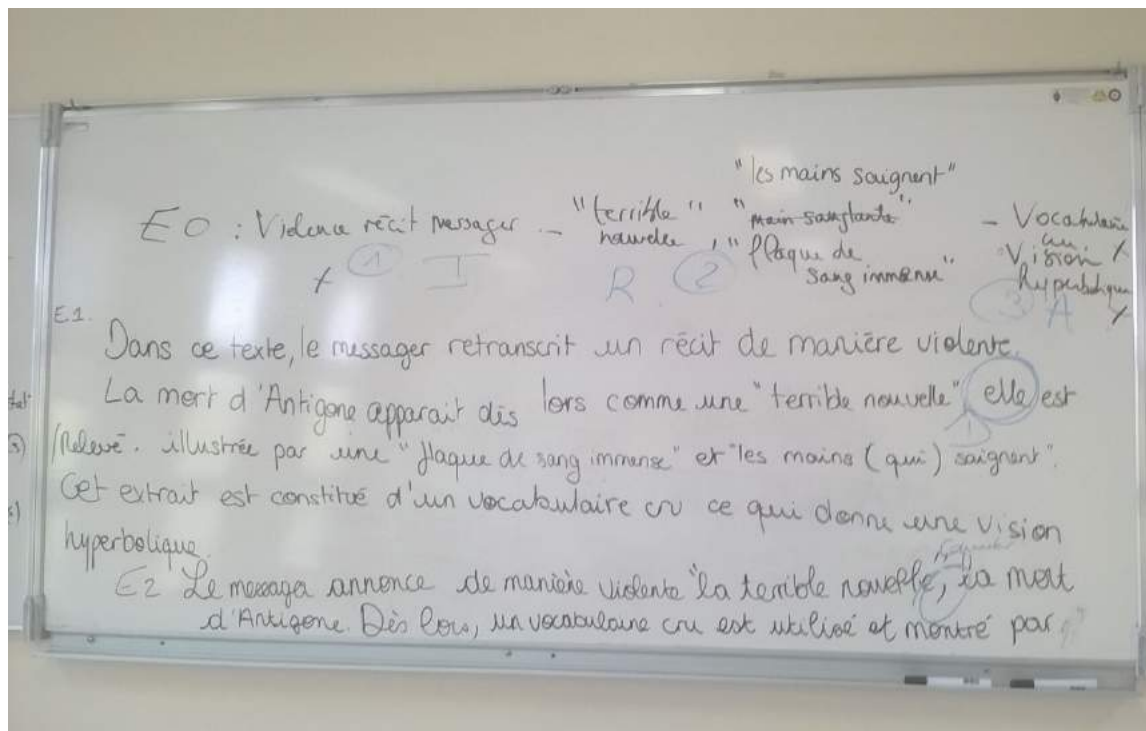 "les mains saignent"
E0 : Violence récit messager - "terrible" "main sanglante" - Vocabulaire
nouvelle , "flaque de cru X
sang immense" Vision
X 1 I R 2 hyperbolique
3 A X
E1.
Dans ce texte, le messager retranscrit un récit de manière violente.
La mort d'Antigone apparait dès lors comme une "terrible nouvelle", elle est
/Relevé. illustrée par une "flaque de sang immense" et "les mains (qui) saignent".
Cet extrait est constitué d'un vocabulaire cru ce qui donne une vision
hyperbolique.
E2 Le messager annonce de manière violente "la terrible nouvelle", la mort
d'Antigone. Dès lors, un vocabulaire cru est utilisé et montré par "